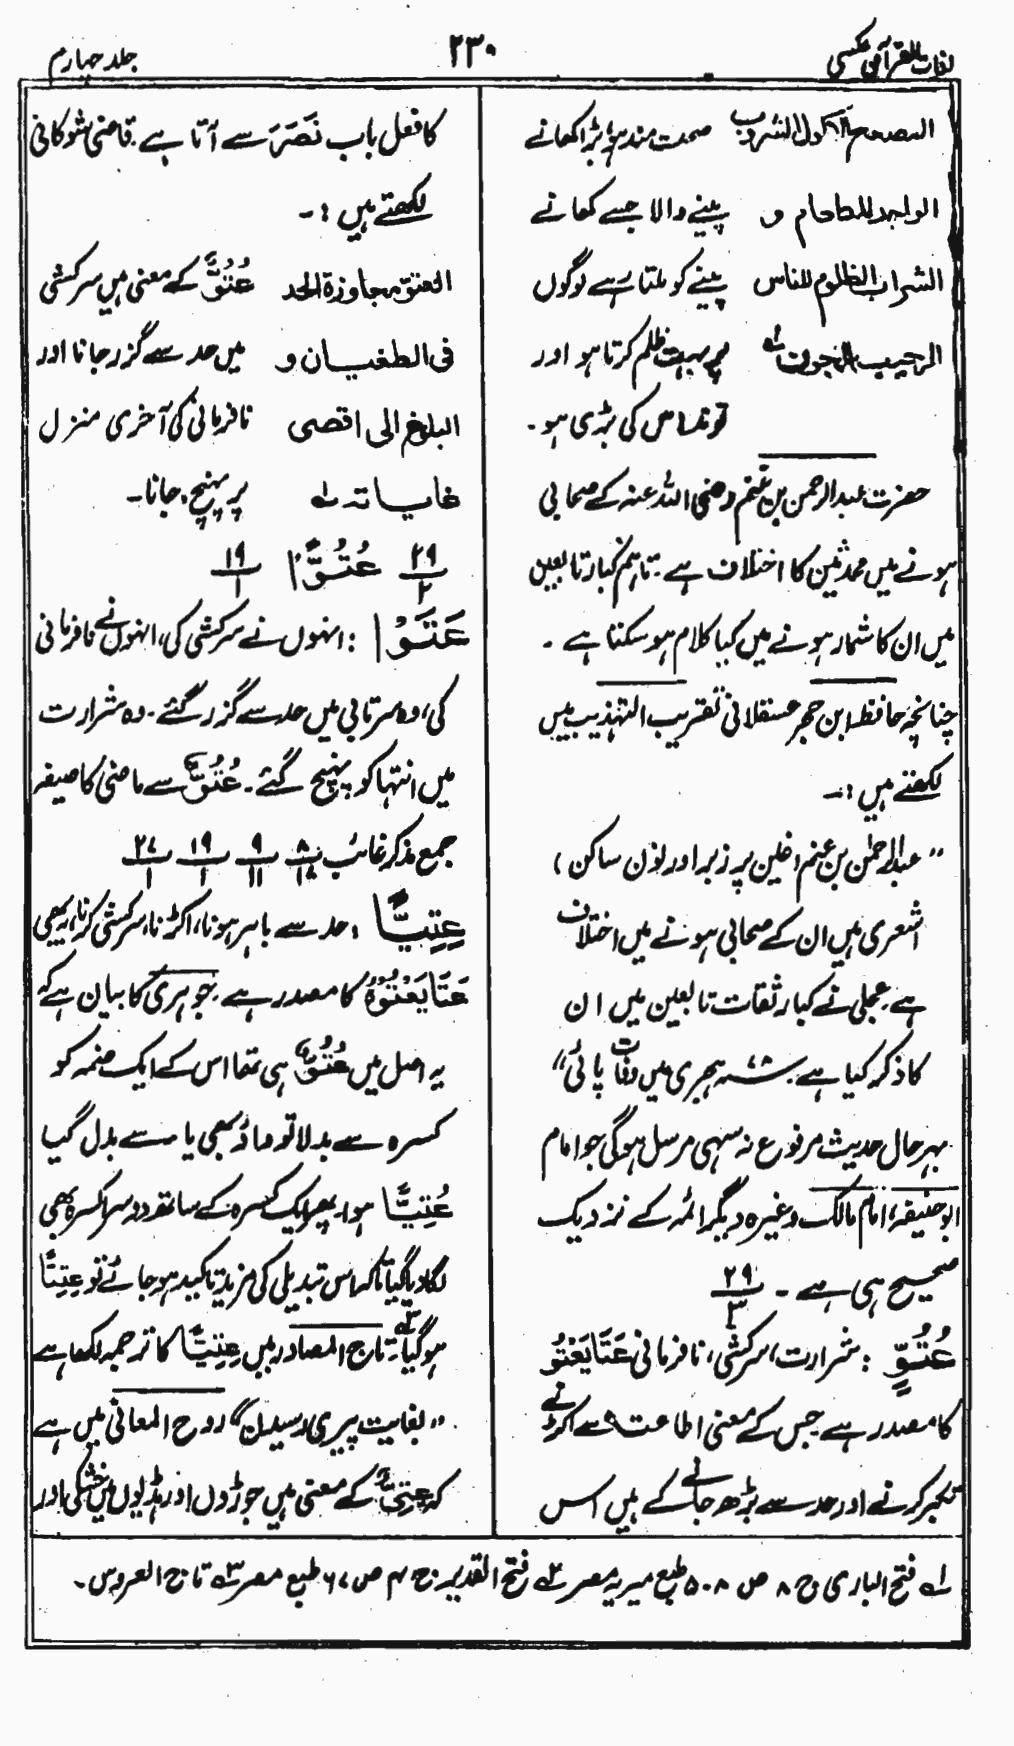 لغات القرآن عکسی
۲۳۰
جلد چہارم
المصحح الاکول الشروب صحت مند ہو بڑا کھانے
الواجد للطعام و پینے والا جسے کھانے
الشراب الظلوم للناس پینے کو ملتا رہے لوگوں
الرحیب الجوف لہ پر بہت ظلم کرتا ہو اور
توند اس کی بڑی ہو۔
حضرت عبدالرحمن بن غنم رضی اللہ عنہ کے صحابی
ہونے میں محدثین کا اختلاف ہے۔ تاہم کبار تابعین
میں ان کا شمار ہونے میں کیا کلام ہو سکتا ہے۔
چنانچہ حافظ ابن حجر عسقلانی تقریب التہذیب میں
لکھتے ہیں :۔
" عبدالرحمٰن بن غنم (غین پر زبر اور نون ساکن)
اشعری ہیں ان کے صحابی ہونے میں اختلاف
ہے عجلی نے کبار ثقات تابعین میں ان
کا ذکر کیا ہے۔ ۷۸ سنہ ہجری میں وفات پائی"
بہر حال حدیث مرفوع نہ سہی مرسل ہوگی جو امام
ابو حنیفہ، امام مالک وغیرہ دیگر ائمہ کے نزدیک
صحیح ہی ہے ۔ ۲۹/۳
عُتُوٍّ : شرارت، سرکشی، نافرمانی عَتَا یَعْتُو
کا مصدر ہے جس کے معنی اطاعت سے اکڑنے
تکبر کرنے اور حد سے بڑھ جانے کے ہیں اس
کا فعل باب نَصَرَ سے آتا ہے۔ قاضی شوکانی
لکھتے ہیں :۔
العتو مجاوزة الحد عُتُوٌّ کے معنی ہیں سرکشی
فی الطغیان و میں حد سے گزر جانا اور
البلوغ الی اقصی نافرمانی کی آخری منزل
غایاته ٢ہ پر پہنچ جانا۔
عُتُوًّا ۱۹/۱ ۲۹/۲
عَتَوْا : انہوں نے سرکشی کی، انہوں نے نافرمانی
کی، وہ سرتابی میں حد سے گزر گئے۔ وہ شرارت
میں انتہا کو پہنچ گئے۔ عُتُوٌّ سے ماضی کا صیغہ
جمع مذکر غائب ۸/۱۷ ۹/۱۱ ۱۹/۱ ۲۷/۱
عِتِیًّا : حد سے باہر ہونا، اکڑنا، سرکشی کرنا، یہ بھی
عَتَا یَعْتُوْ کا مصدر ہے۔ جوہری کا بیان ہے کہ
یہ اصل میں عُتُوٌّ ہی تھا اس کے ایک ضمہ کو
کسرہ سے بدلا تو واؤ بھی یا سے بدل گیا
عُتِیًّا ہوا۔ پھر ایک کسرہ کے ساتھ دوسرا کسرہ بھی
لگا دیا گیا تاکہ اس تبدیلی کی مزید تاکید ہو جائے تو عِتِیًّا
ہوگیا۔ ٣ہ تاج المصادر میں عِتِیًّا کا ترجمہ لکھا ہے
" بغایت پیری رسیدن" روح المعانی میں ہے
کہ عِتِیٌّ کے معنی ہیں جوڑوں اور ہڈیوں میں خشکی اور
۱ہ فتح الباری ج ۸ ص ۵۰۸ طبع میریہ مصر ۲ہ فتح القدیر ج ۴ ص ۶۷ طبع مصر ۳ہ تاج العروس۔